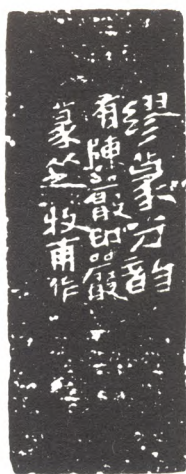 繆篆分韵
有陳嚴印嚴
篆牧甫作